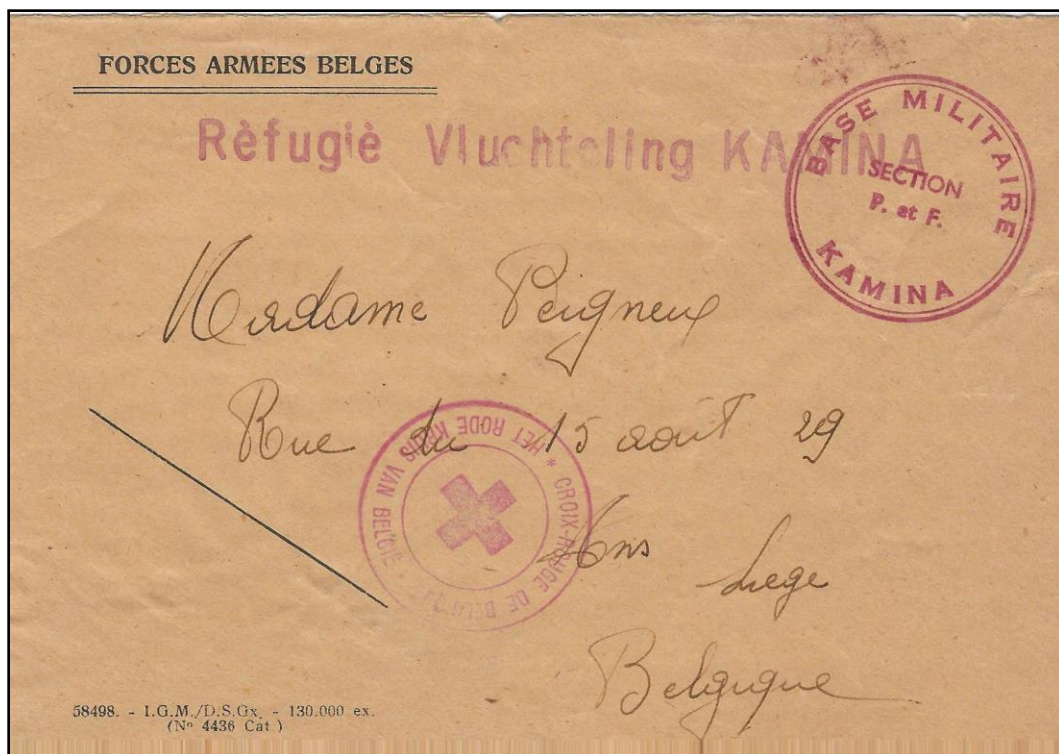 FORCES ARMEES BELGES
Rèfugiè Vluchteling KAMINA
BASE MILITAIRE
SECTION
P. et F.
KAMINA
Madame Peigneux
Rue du 15 août 29
* CROIX-ROUGE DE BELGIQUE * HET RODE KRUIS VAN BELGIË
Ans
Liege
Belgique
58498. - I.G.M./D.S.Gx. - 130.000 ex.
(Nº 4436 Cat.)